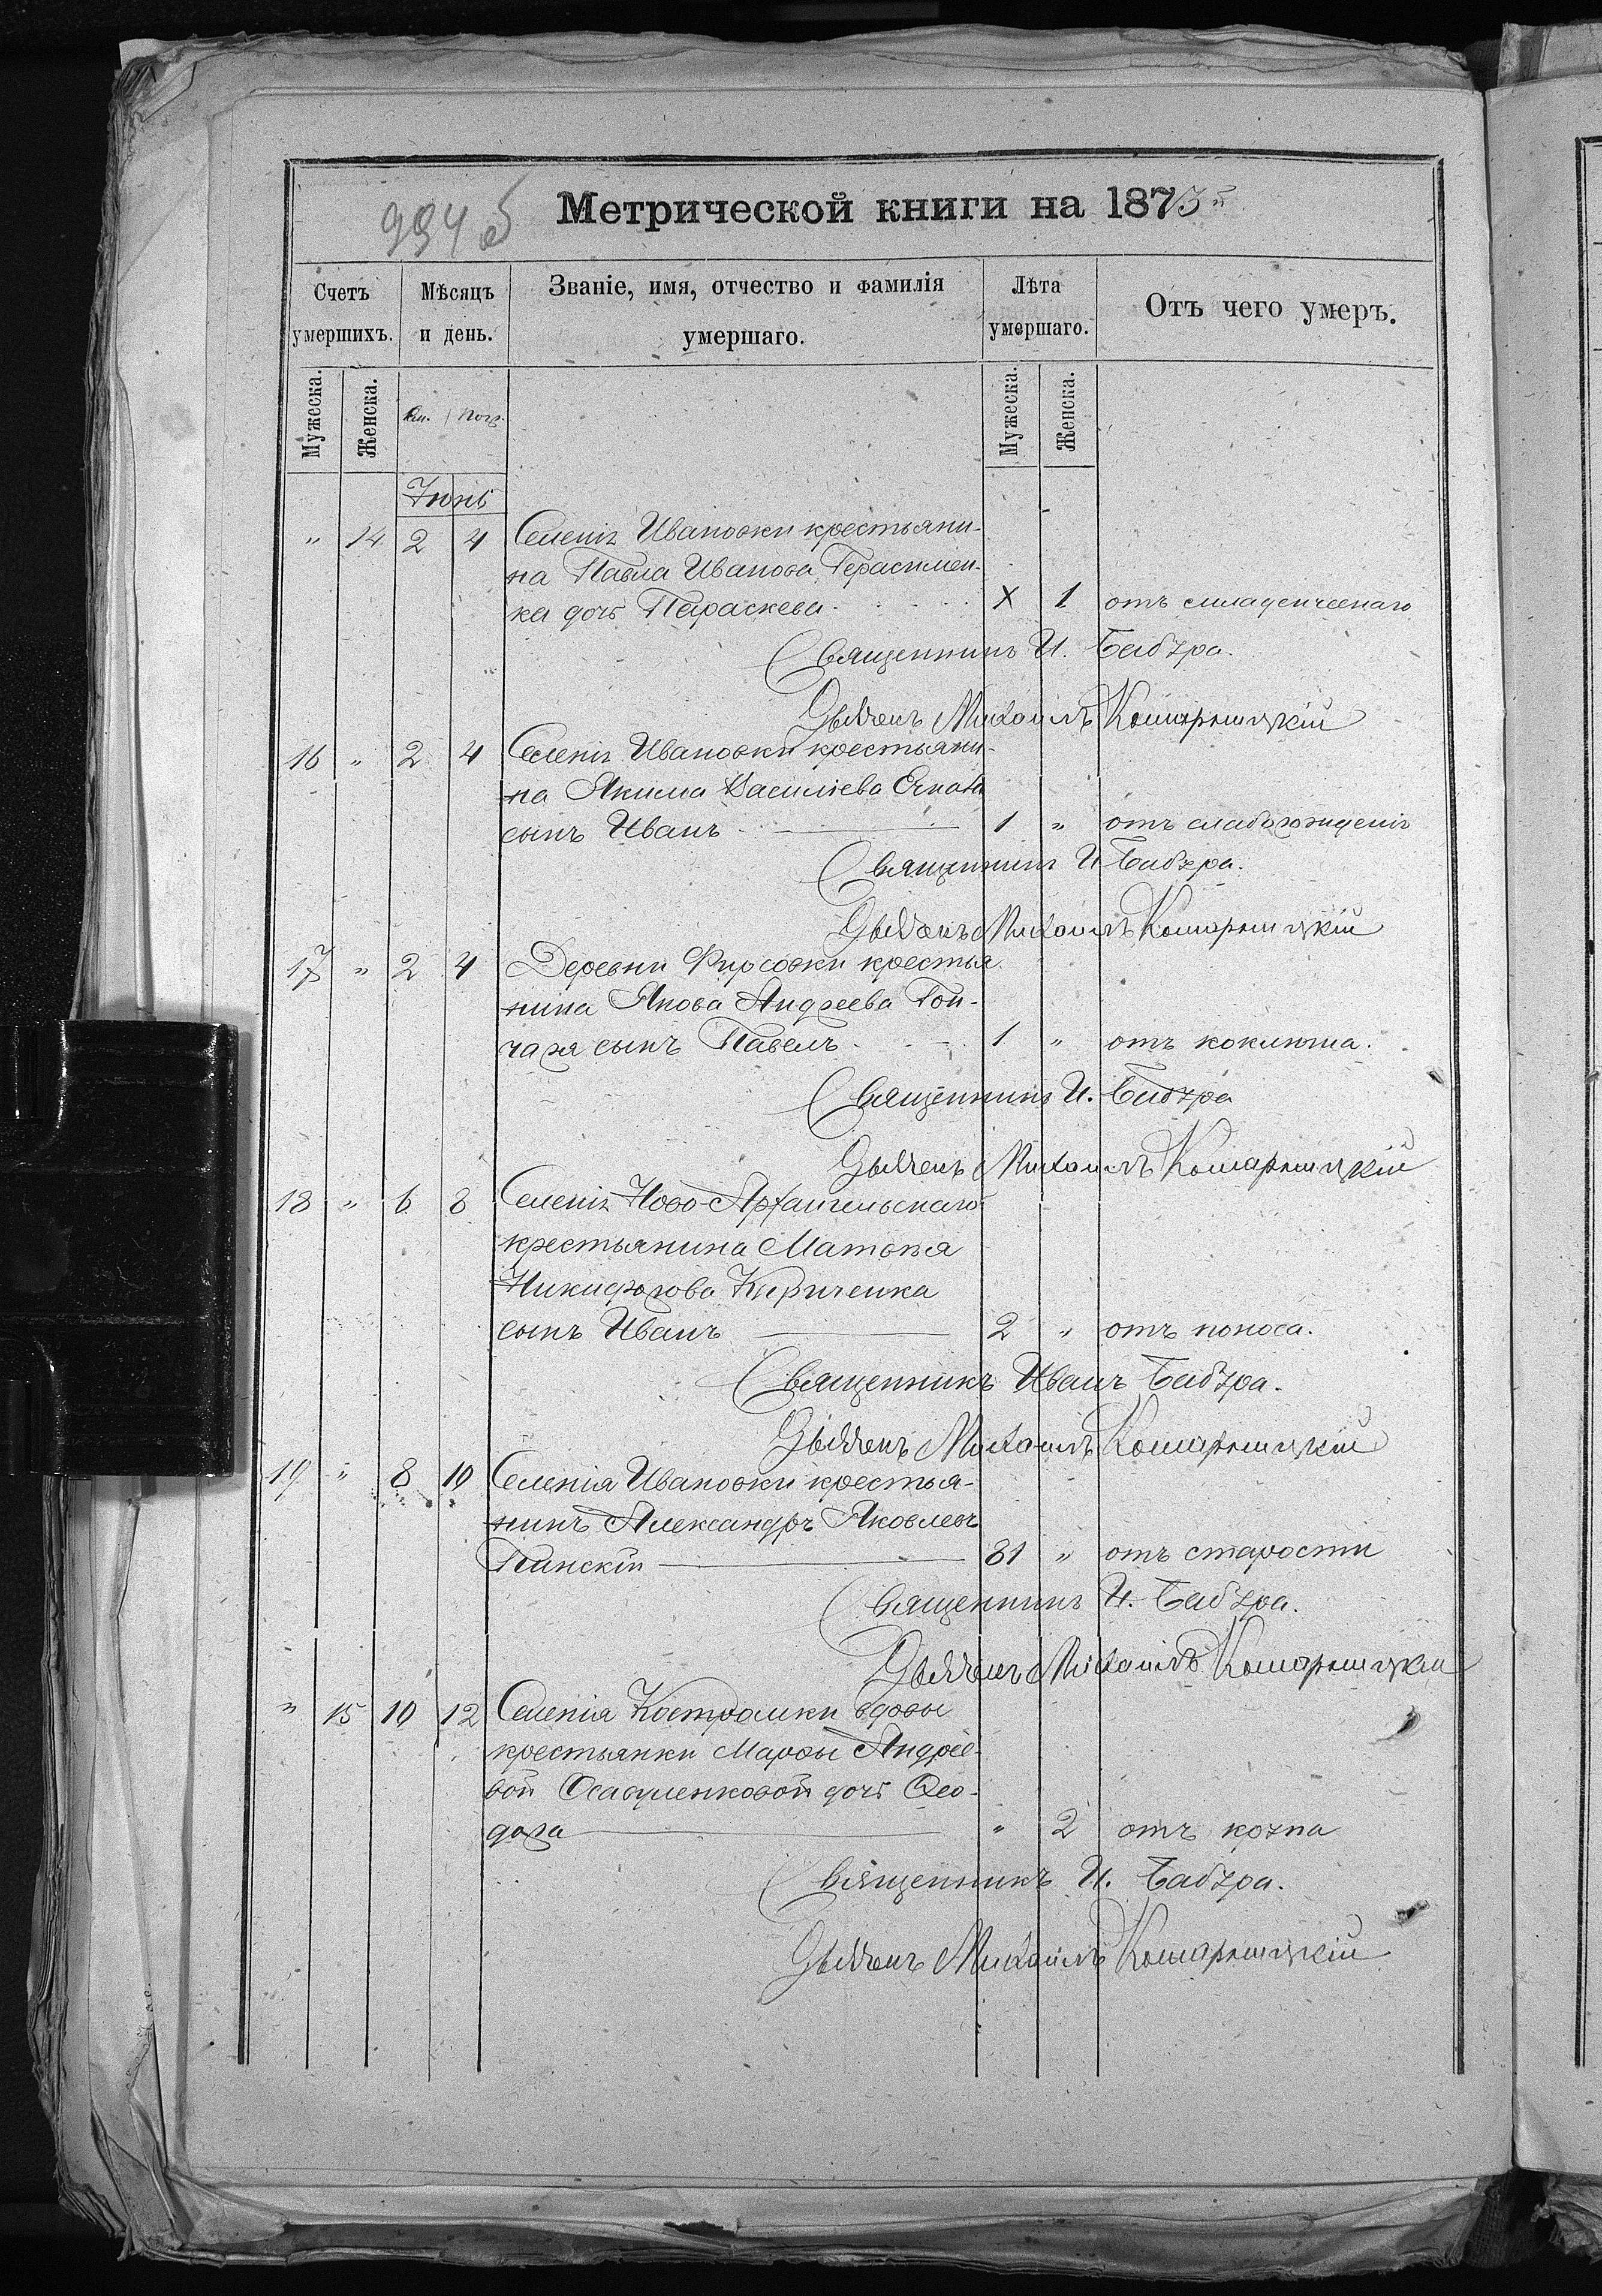 994 об
Метрической книги на 1875й
Счетъ умершихъ.
Мѣсяцъ и день.
Званіе, имя, отчество и фамилія умершаго.
Лѣта умершаго.
Отъ чего умеръ.
Мужеска. Женска. См. Погр. Мужеска. Женска.
Іюнь
" 14 2 4 Селенія Ивановки крестьяни-
на Павла Иванова Герасимен-
ка дочь Параскева X 1 отъ младенческаго
Священникъ И. Бабура.
Дьячекъ Михаилъ Комарницкій
16 " 2 4 Селенія Ивановки крестьяни-
на Якима Василіева
сынъ Иванъ 1 " отъ слаборожденія
Священникъ И Бабура.
Дьячекъ Михаилъ Комарницкій
17 " 2 4 Деревни Фирсовки крестья-
нина Якова Андреева Гон-
чаря сынъ Павелъ 1 " отъ коклюша.
Священникъ И. Бабура
Дьячекъ Михаилъ Комарницкій
18 " 6 8 Селенія Ново-Архангельскаго
крестьянина Матвѣя
Никифорова Кириченка
сынъ Иванъ 2 " отъ поноса.
Священникъ Иванъ Бабура.
Дьячекъ Михаилъ Комарницкій
19 " 8 10 Селенія Ивановки крестья-
нинъ Александръ Яковлевъ
Пинскій 81 " отъ старости
Священникъ И. Бабура.
Дьячекъ Михаилъ Комарницкій
" 15 10 12 Селенія Костромки вдовы
крестьянки Марфы Андрее-
вой Осавуленковой дочь Ѳео-
дора " 2 отъ
Священникъ И. Бабура.
Дьячекъ Михаилъ Комарницкій